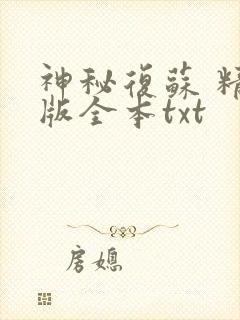 神秘復蘇 精
版全本txt
房媳